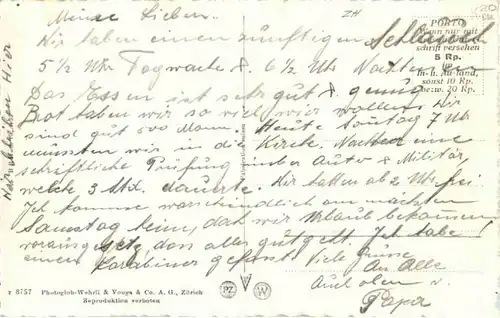 Meine Lieben.
Wir haben einen zünftigen Schlauch
5 1/2 Uhr Tagwache & 6 1/2 Uhr
Das Essen ist sehr gut & genug
Brot haben wir so viel wir wollen. Wir
sind gut 500 Mann. Heute Sonntag 7 Uhr
mussten wir in die Kirche. Nachher eine
schriftliche Prüfung über Auto & Militär,
welche 3 Std. dauerte. Wir hatten ab 2 Uhr frei
Ich komme warscheindlich am nächsten
Samstag heim, das wir Urlaub bekommen
vorausgesetz dass alles gut geht. Ich habe
einen Carabiner gefasst. Viele Grüsse
An Alle
Auch oben v.
Papa
PORTO
Wenn nur mit
schrift versehen
5 Rp.
In- u. Ausland,
sonst 10 Rp.
bezw. 20 Rp.
T 8757 Photoglob-Wehrli & Vouga & Co. A. G., Zürich
Reproduktion verboten
PZ W